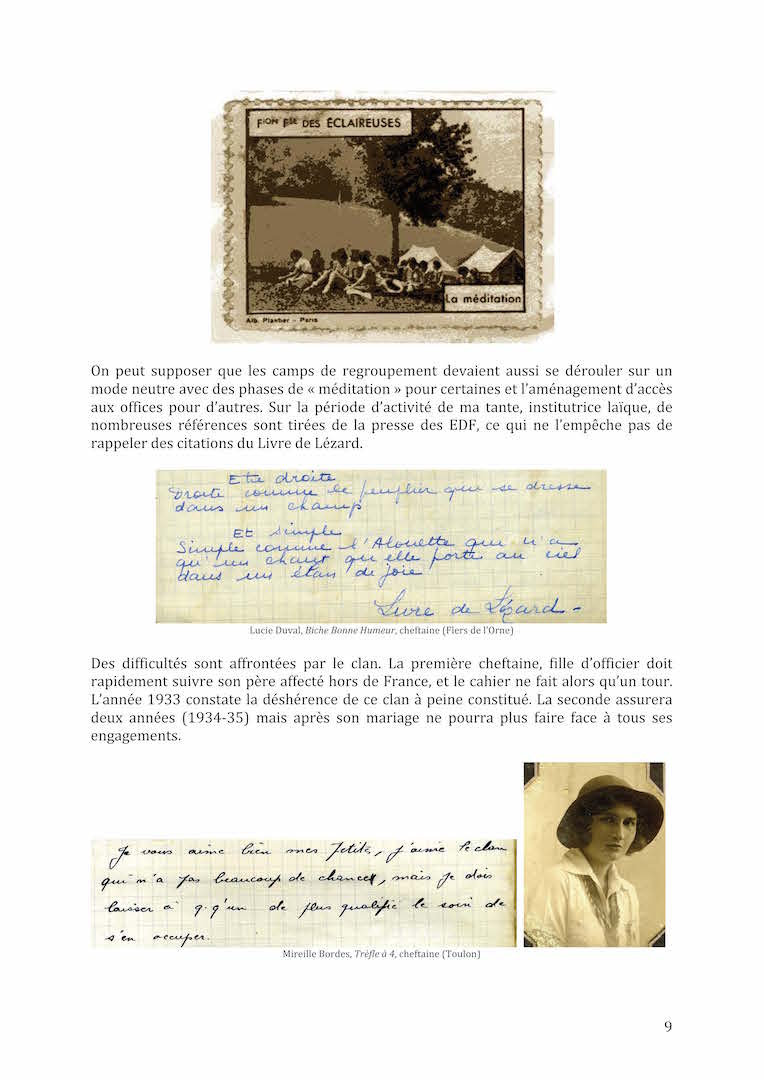 Fᴵᴼᴺ Fˢᴱ DES ÉCLAIREUSES
La méditation
Alb. Plantier - Paris
On peut supposer que les camps de regroupement devaient aussi se dérouler sur un
mode neutre avec des phases de « méditation » pour certaines et l’aménagement d’accès
aux offices pour d’autres. Sur la période d’activité de ma tante, institutrice laïque, de
nombreuses références sont tirées de la presse des EDF, ce qui ne l’empêche pas de
rappeler des citations du Livre de Lézard.
Etre droite
Droite comme le peuplier qui se dresse
dans un champ
Et simple
Simple comme l'Alouette qui n'a
qu'un chant qu'elle porte au ciel
dans un élan de joie
Livre de Lézard -
Lucie Duval, Biche Bonne Humeur, cheftaine (Flers de l’Orne)
Des difficultés sont affrontées par le clan. La première cheftaine, fille d’officier doit
rapidement suivre son père affecté hors de France, et le cahier ne fait alors qu’un tour.
L’année 1933 constate la déshérence de ce clan à peine constitué. La seconde assurera
deux années (1934-35) mais après son mariage ne pourra plus faire face à tous ses
engagements.
Je vous aime bien mes Petites, j'aime le clan
qui n'a pas beaucoup de chances, mais je dois
laisser à q.q'un de plus qualifié le soin de
s'en occuper.
Mireille Bordes, Trèfle à 4, cheftaine (Toulon)
9